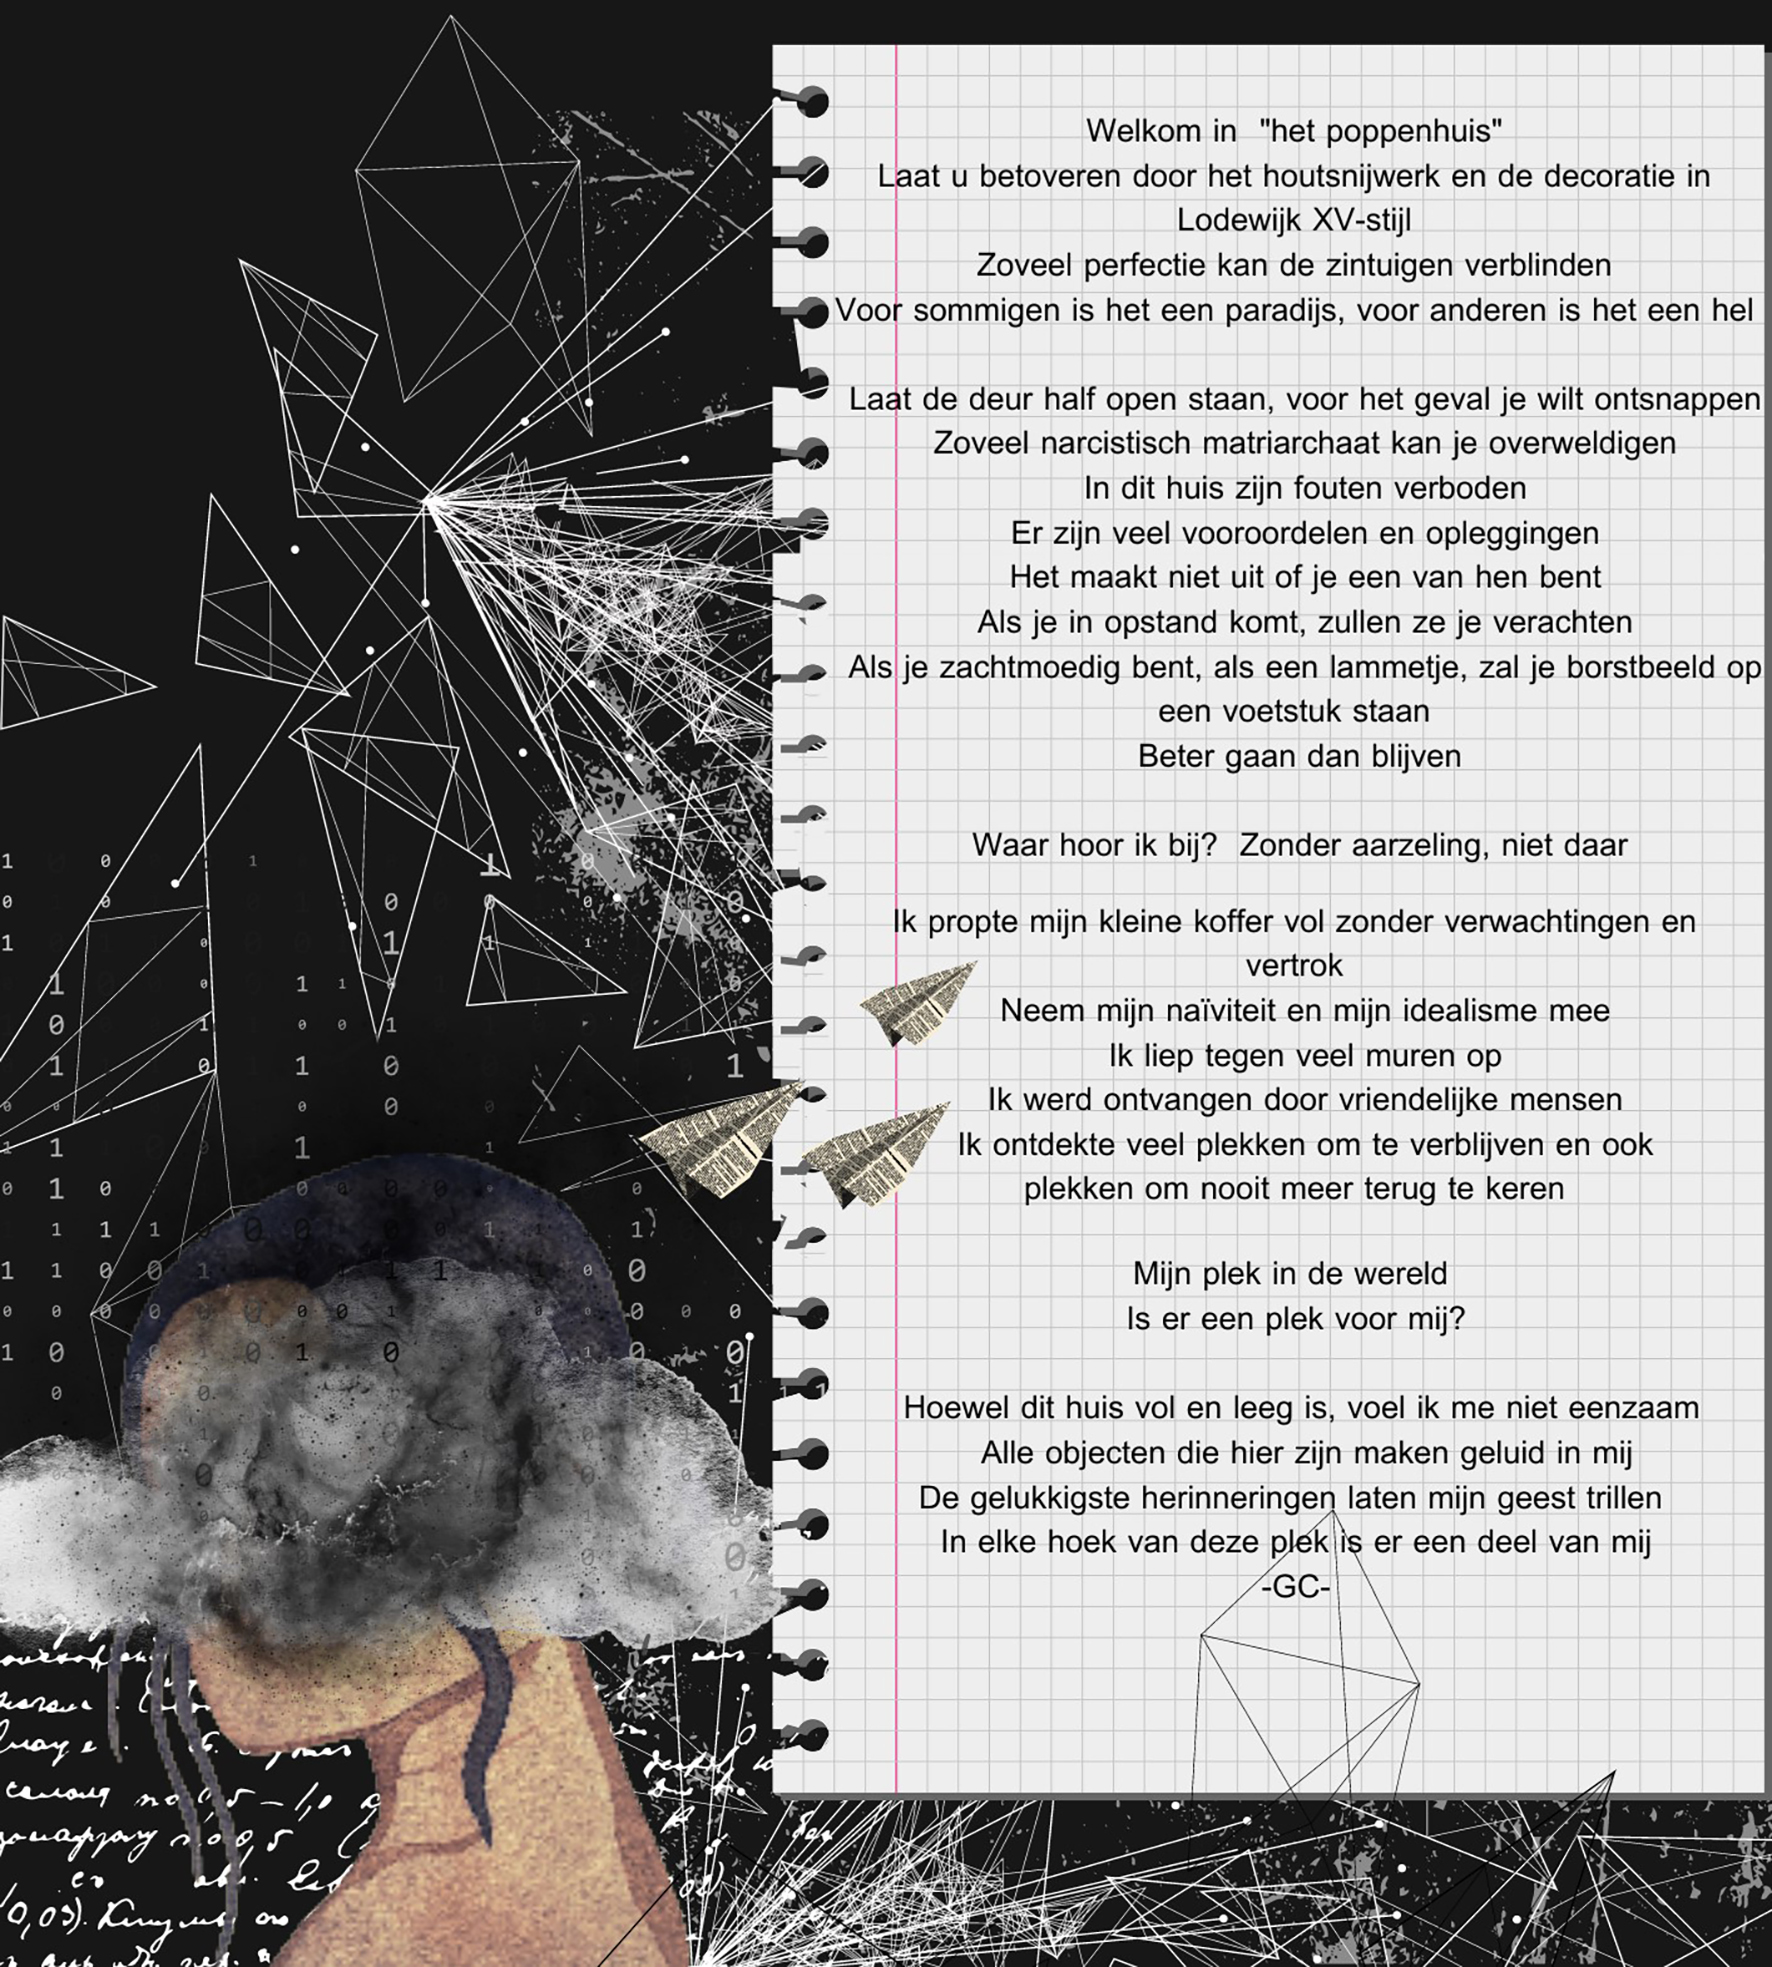 Welkom in  "het poppenhuis"
Laat u betoveren door het houtsnijwerk en de decoratie in
Lodewijk XV-stijl
Zoveel perfectie kan de zintuigen verblinden
Voor sommigen is het een paradijs, voor anderen is het een hel
Laat de deur half open staan, voor het geval je wilt ontsnappen
Zoveel narcistisch matriarchaat kan je overweldigen
In dit huis zijn fouten verboden
Er zijn veel vooroordelen en opleggingen
Het maakt niet uit of je een van hen bent
Als je in opstand komt, zullen ze je verachten
Als je zachtmoedig bent, als een lammetje, zal je borstbeeld op
een voetstuk staan
Beter gaan dan blijven
Waar hoor ik bij?  Zonder aarzeling, niet daar
Ik propte mijn kleine koffer vol zonder verwachtingen en
vertrok
Neem mijn naïviteit en mijn idealisme mee
Ik liep tegen veel muren op
Ik werd ontvangen door vriendelijke mensen
Ik ontdekte veel plekken om te verblijven en ook
plekken om nooit meer terug te keren
Mijn plek in de wereld
Is er een plek voor mij?
Hoewel dit huis vol en leeg is, voel ik me niet eenzaam
Alle objecten die hier zijn maken geluid in mij
De gelukkigste herinneringen laten mijn geest trillen
In elke hoek van deze plek is er een deel van mij
-GC-